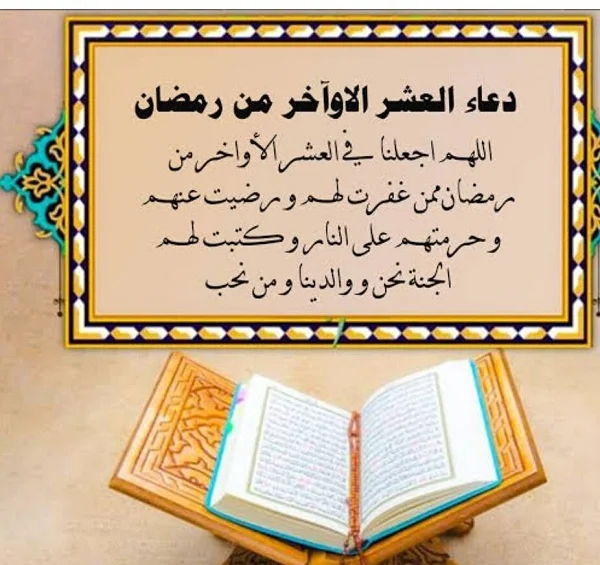 دعاء العشر الاوآخر من رمضان
اللهم اجعلنا في العشر الأواخر من
رمضان ممن غفرت لهم ورضيت عنهم
وحرمتهم على النار وكتبت لهم
الجنة نحن ووالدينا ومن نحب